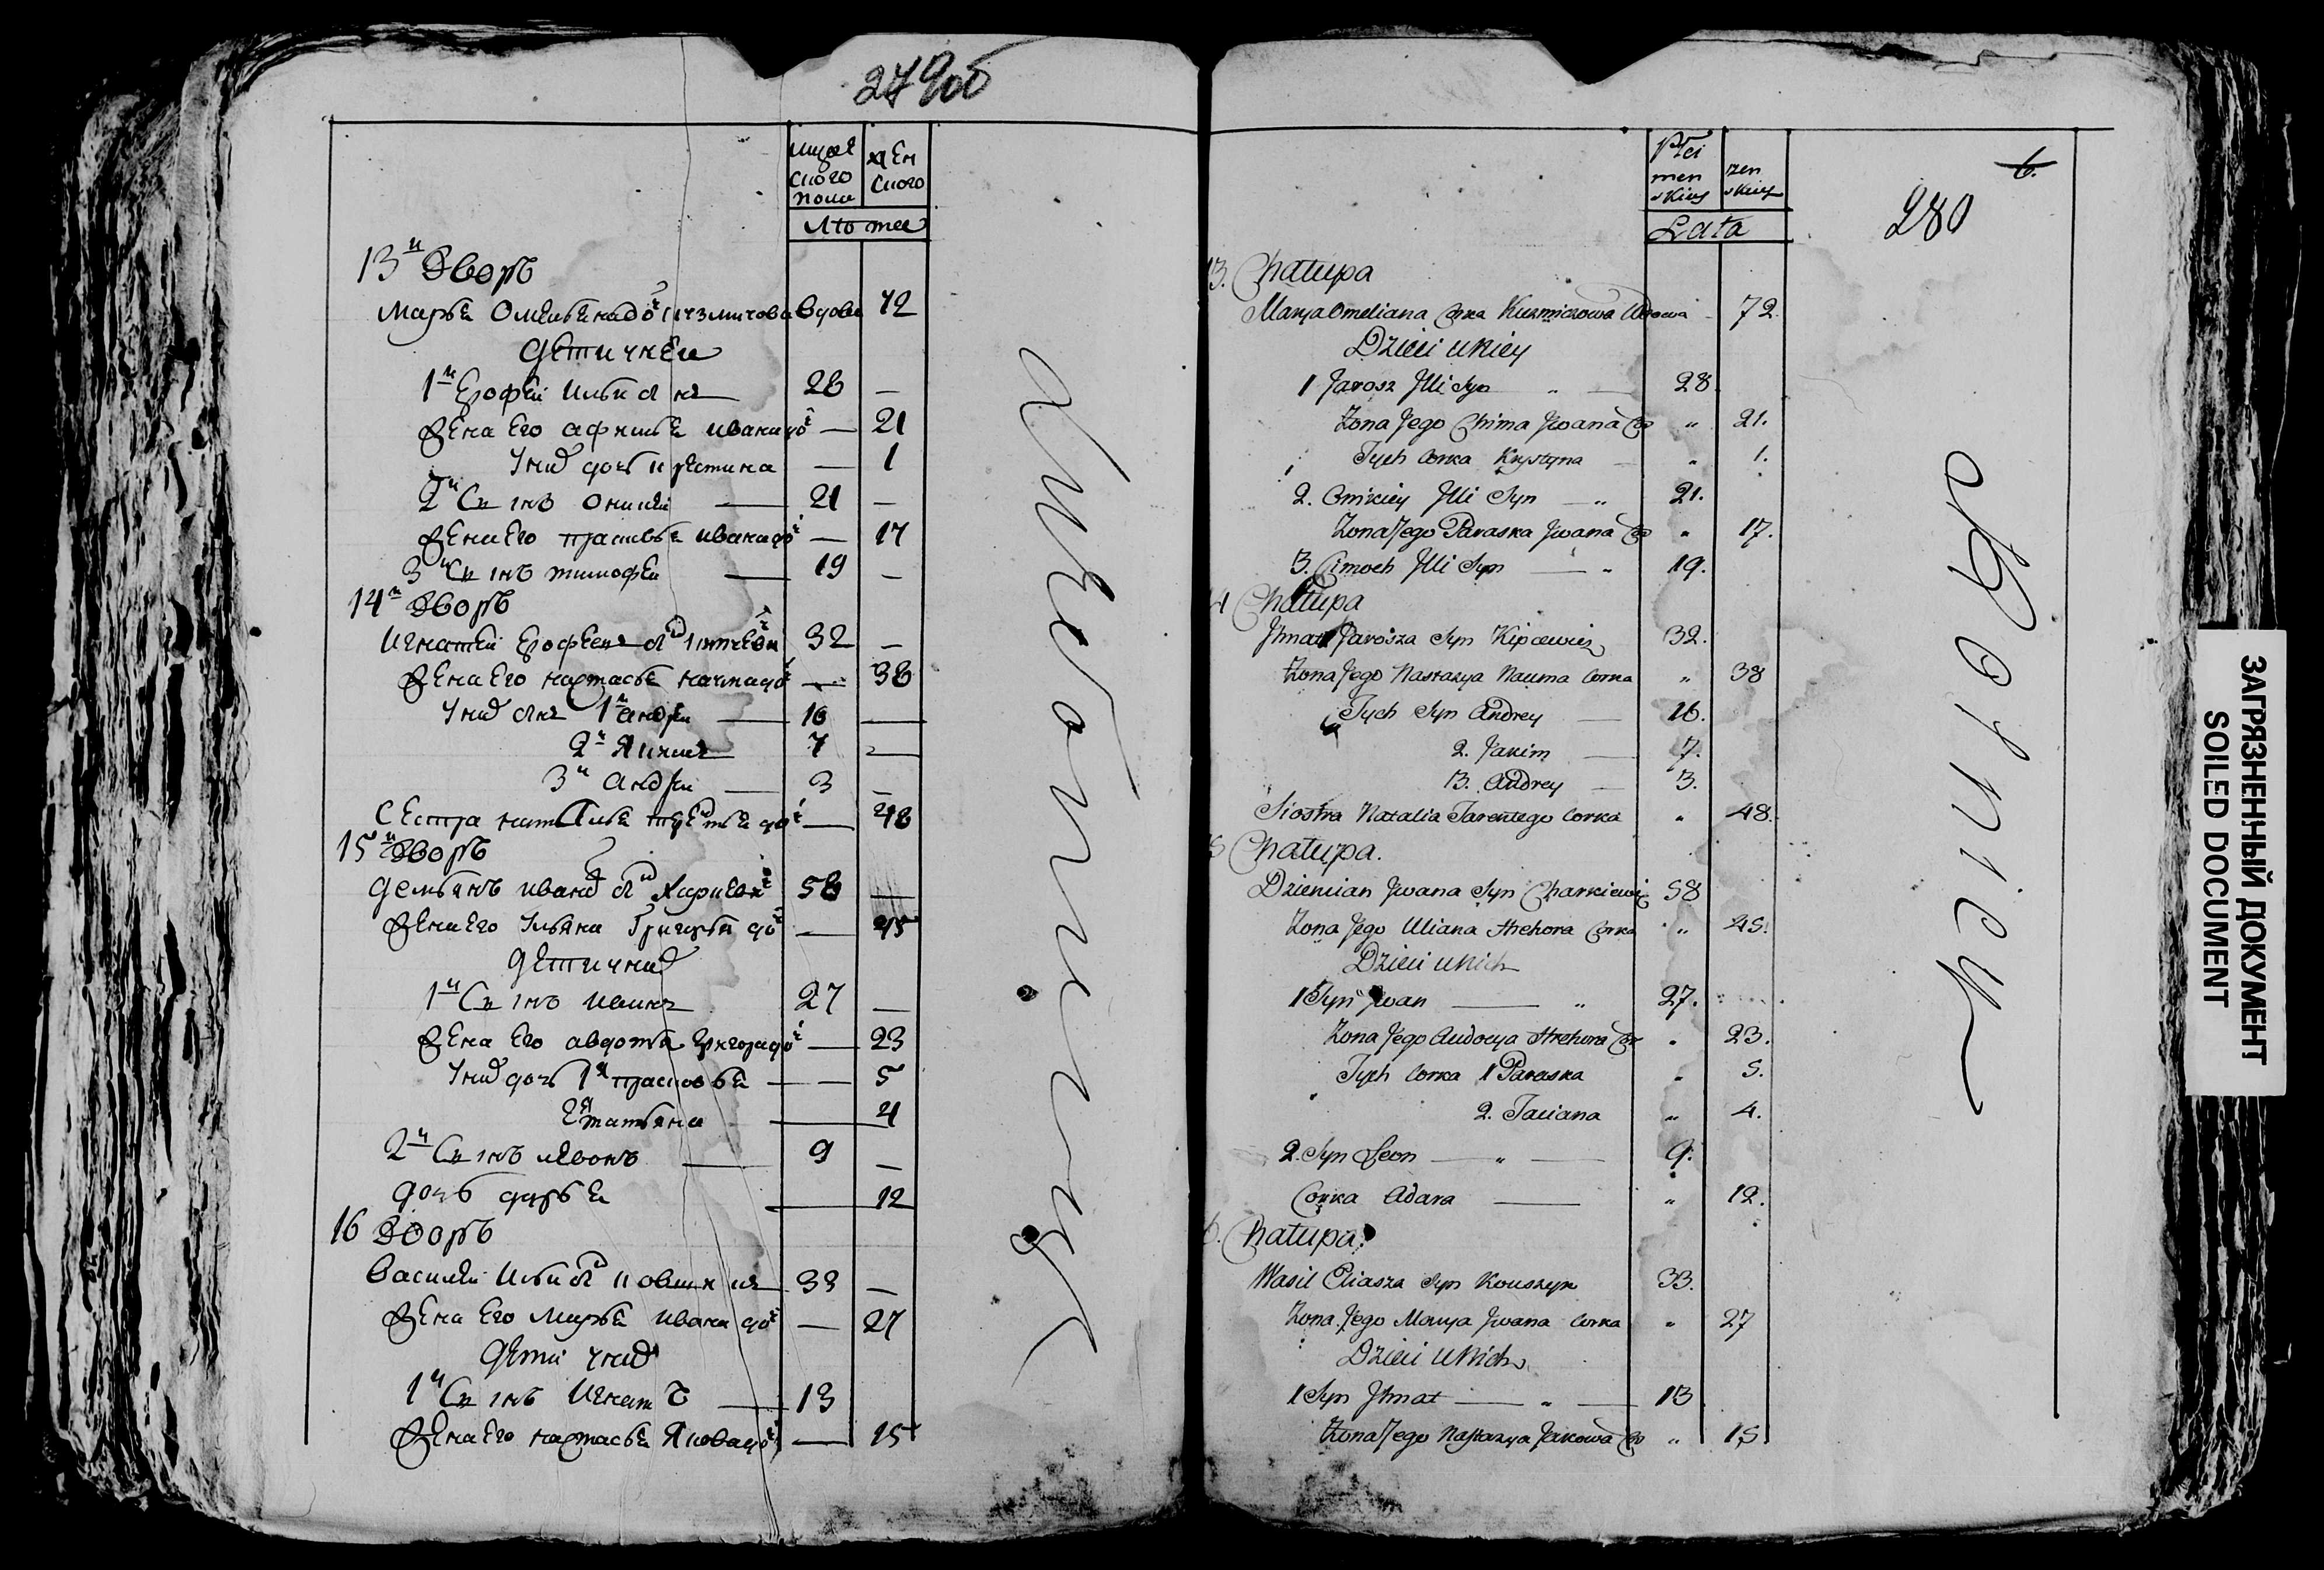 279об
мужескогo пола
женского
Лто мее
13й Дворъ
Марья Омельяна до Кузмичова вдова 72
Дети у неи
1й Ерофей Ильи сын 28 —
Жена его Афимья Ивана до — 21
У них дочь Кристина — 1
2й Сынъ Оникей — 21 —
Жена его Прасковья Ивана до — 17
3й Сынъ Тимофей — 19 —
14й Дворъ
Игнатей Ерофеев сын 32 —
Жена его Настасья Наума до — 38
У них сын 1й Андрей — 16 —
2й Яким 7 —
3й Андрей — 3 —
Сестра Наталья до — 48
15й Дворъ
Демьянъ Ивана сын 58 —
Жена его Ульяна Григорья до — 45
Дети у них
1й Сынъ Иван 27 —
Жена его Авдотья Григора до — 23
У них дочь 1я Прасковья — 5
2я Татьяна — 4
2й Сынъ Левонъ — 9 —
Дочь Дарья — 12
16 Дворъ
Василей Ильи сын 33 —
Жена его Марья Ивана до — 27
Дети у них
1й Сынъ Игнатъ — 13
Жена его Настасья Якова до — 15
Płci
menskiey
zenskiey
Lata
6.
280
13. Chałupa
Marya Omeliana Crka Kuzmiczowa Wdowa 72.
Dzieci u Niey
1 Jarosz Jlli Syn " — 28.
Zona Jego Chima Jwana Co " 21.
Tych Corka Krystyna — " 1.
2. Onikiey Jlli Syn — " 21.
Zona Jego Paraska Jwana Co " 17.
3. Cimoch Jlli Syn — " 19.
14 Chałupa
Jhnat Jarosza Syn Kipcewicz 32.
Zona Jego Nastazya Nauma Corka " 38
Tych Syn Andrey — 16.
2. Jakim — 7.
3. Andrey — 3.
Siostra Natalia Tarentego Corka " 48.
15 Chałupa.
Dziemian Jwana Syn Charkiewicz 58
Zona Jego Uliana Hrehora Corka " 45.
Dzieci u Nich
1 Syn Jwan — " 27.
Zona Jego Audocya Hrehora Cor " 23.
Tych Corka 1 Paraska " 5.
2. Taciana " 4.
2. Syn Leon — " — 9.
Corka Adara — " 12.
16. Chałupa.
Wasil Eliasza Syn Kouszyk 33.
Zona Jego Marya Jwana Corka " 27
Dzieci u Nich
1 Syn Jhnat — " — 13
Zona Jego Nastazya Jakowa Co " 15.
ЗАГРЯЗНЕННЫЙ ДОКУМЕНТ
SOILED DOCUMENT